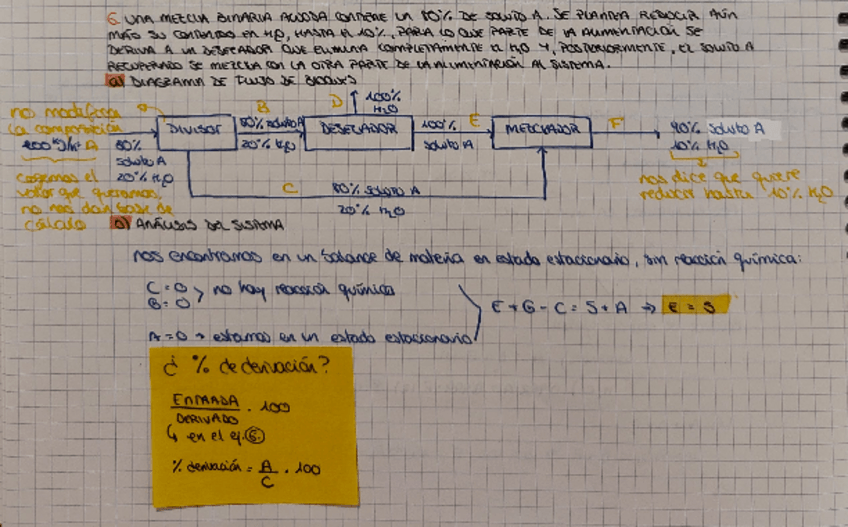 6. UNA MEZCLA BINARIA ACUOSA CONTIENE UN 80% DE SOLUTO A. SE PLANTEA REDUCIR AÚN
MÁS SU CONTENIDO EN H2O, HASTA EL 10%, PARA LO QUE PARTE DE LA ALIMENTACIÓN SE
DERIVA A UN DESECADOR QUE ELIMINA COMPLETAMENTE EL H2O Y, POSTERIORMENTE, EL SOLUTO A
RECUPERADO SE MEZCLA CON LA OTRA PARTE DE LA ALIMENTACIÓN AL SISTEMA.
a) DIAGRAMA DE FLUJO DE BLOQUES
no modifica
la composición
100 kg/h A
80%
soluto A
20% H2O
cogemos el
valor que queramos,
no nos dan base de
cálculo
DIVISOR
B
80% soluto A
20% H2O
D
100%
H2O
DESECADOR
100% E
soluto A
MEZCLADOR
F
90% soluto A
10% H2O
nos dice que quiere
reducir hasta 10% H2O
C
80% soluto A
20% H2O
ANÁLISIS DEL SISTEMA
nos encontramos en un balance de materia en estado estacionario, sin reacción química:
C=0
G=0
no hay reacción química
A=0 → estamos en un estado estacionario
E+G-C=S+A → E=S
¿% de derivación?
ENTRADA
DERIVADO
· 100
↳ en el ej. 6
% derivación = A/C · 100